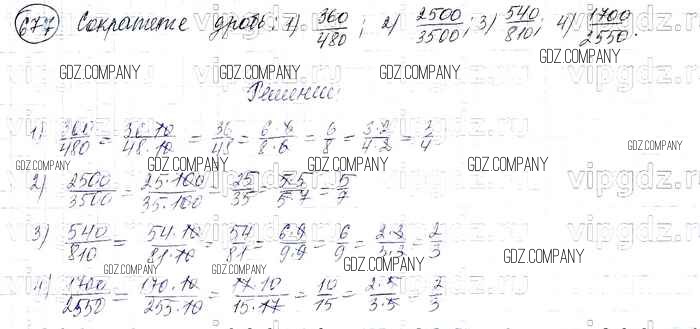 677 Сократите дробь: 1) 360/480; 2) 2500/3500; 3) 540/810; 4) 1700/2550.
GDZ.COMPANY GDZ.COMPANY GDZ.COMPANY
Решение:
1) 360/480 = 36·10/48·10 = 36/48 = 6·6/8·6 = 6/8 = 3·2/4·2 = 3/4
GDZ.COMPANY GDZ.COMPANY GDZ.COMPANY GDZ.COMPANY
2) 2500/3500 = 25·100/35·100 = 25/35 = 5·5/5·7 = 5/7
3) 540/810 = 54·10/81·10 = 54/81 = 6·9/9·9 = 6/9 = 2·3/3·3 = 2/3
GDZ.COMPANY GDZ.COMPANY GDZ.COMPANY GDZ.COMPANY
4) 1700/2550 = 170·10/255·10 = 17·10/15·17 = 10/15 = 2·5/3·5 = 2/3
vipgdz.ru